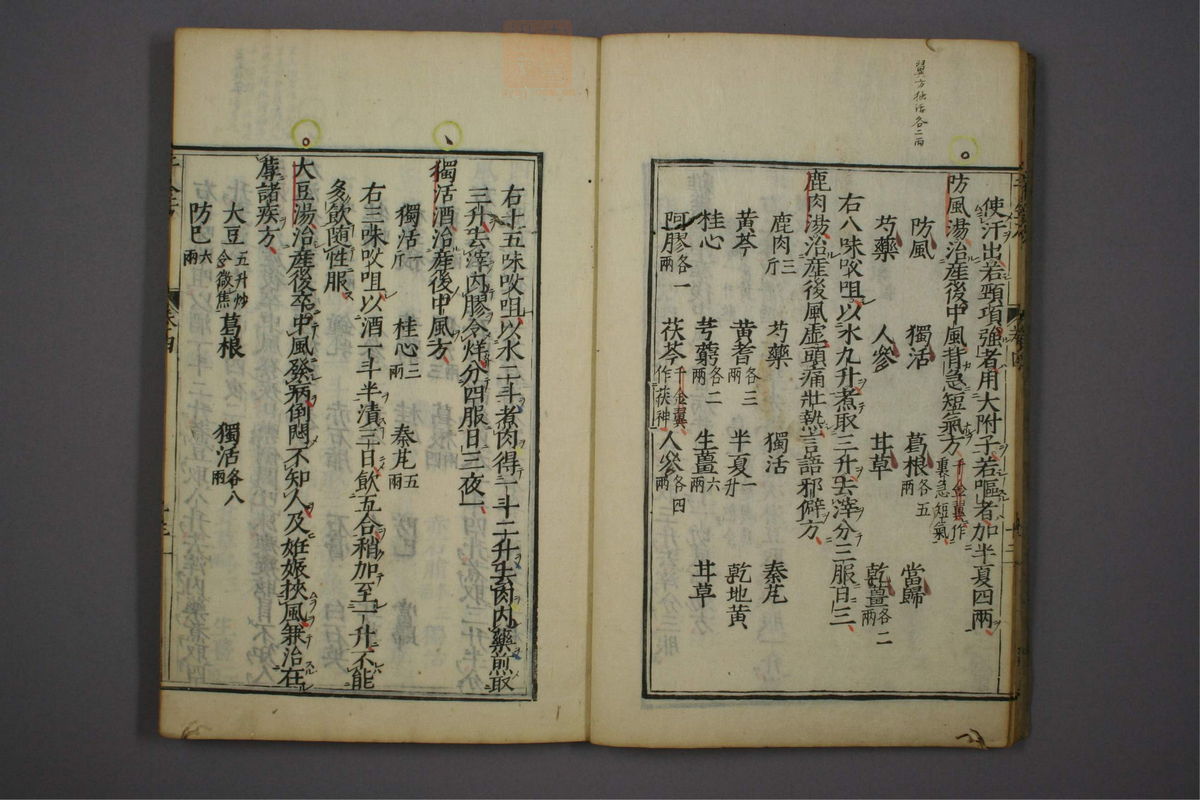 翼方独活各二両
使汗出若頸項強者用大附子若嘔者加半夏四兩
防風湯治産後中風背急短氣方千金翼作裏急短氣
防風 獨活 葛根各五兩 當歸
芍藥 人參 甘草 乾薑各二兩
右八味㕮咀以水九升煮取三升去滓分三服日三
鹿肉湯治産後風虛頭痛壯熱言語邪僻方
鹿肉三斤 芍藥 獨活 秦艽
黃芩 黃耆各三兩 半夏一升 乾地黃
桂心 芎藭各二兩 生薑六兩 甘草
阿膠各一兩 茯苓千金翼作茯神 人參各四兩
右十五味㕮咀以水二斗煮肉得一斗二升去肉內藥煎取
三升去滓內膠令烊分四服日三夜一
獨活酒治産後中風方
獨活一斤 桂心三兩 秦艽五兩
右三味㕮咀以酒一斗半漬三日飲五合稍加至一升不能
多飲随性服
大豆湯治産後卒中風發病倒悶不知人及妊娠挾風兼治在
蓐諸疾方
大豆五升炒令微焦 葛根 獨活各八兩
防已六兩